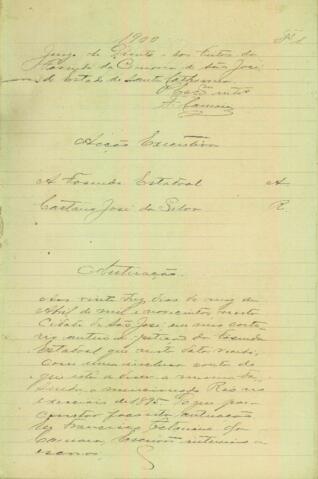 1900
Fl 1
Juizo de Direito dos Feitos da
Fazenda da Comarca de São José
do Estado de Santa Catharina
O Escrivão
F. Camara
Acção Executiva
A Fazenda Estadoal A
Caetano José da Silva R
Autuação
Aos vinte tres dias do mez de
Abril de mil e novecentos nesta
Cidade de São José em meu carto
rio autuei a petição da Fazenda
Estadoal que nesta data recebi
com uma inclusa conta do
que está a dever a mesma Fa
zenda o mencionado Réo no
exercicio de 1895. Do que para
constar faço esta autuação
Eu Francisco Xavier da
Camara, Escrivão interino o
escrevi.